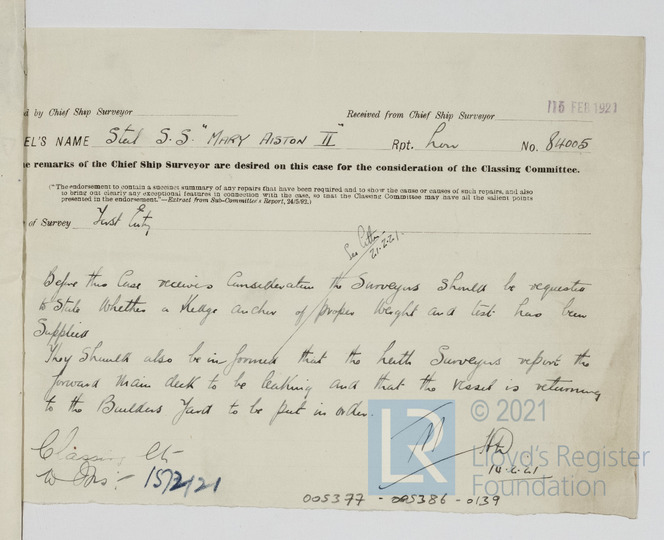 d by Chief Ship Surveyor Received from Chief Ship Surveyor 15 FEB 1921
EL'S NAME Steel S.S. "MARY AISTON II" Rpt. Lon No. 84005
e remarks of the Chief Ship Surveyor are desired on this case for the consideration of the Classing Committee.
(“The endorsement to contain a succinct summary of any repairs that have been required and to show the cause or causes of such repairs, and also
to bring out clearly any exceptional features in connection with the case, so that the Classing Committee may have all the salient points
presented in the endorsement.”—Extract from Sub-Committee's Report, 24/5/92.)
of Survey First Entry
21.2.21.
Before this Case receives Consideration the Surveyors should be requested
to State whether a Kedge anchor of proper weight and test has been
Supplied
They should also be informed that the Leith Surveyors report the
forward main deck to be leaking and that the vessel is returning
to the Builders Yard to be put in order.
14.2.21
Classing
15/2/21
005377 - 005386 - 0139
LR © 2021
Lloyd's Register
Foundation